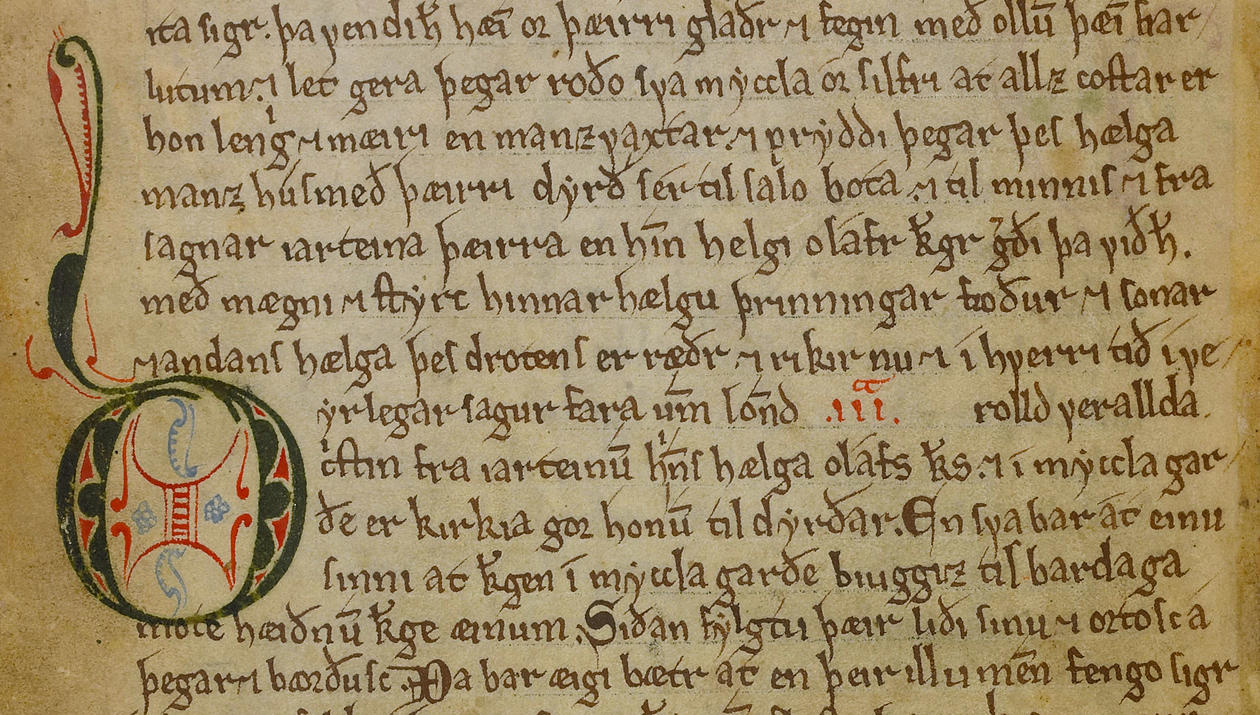 rta sigr. þa ꝩendiꝛ hæī᷎ oꝛ þæirri glaðr ⁊ fegin með ollū þæī ħar
lutum. ⁊ let gera þegar roðo sꝩa mẏccla oꝛ silfri at allz costar er
hon leng̓ ⁊ mæiri en manz ꝩaxtar. ⁊ prẏddi þegar þes hælga
manz hús með þæirri dẏrð sér til salo bota. ⁊ til minnis ⁊ fra
sagnar iarteina þæirra en hīn helgi olafr k̄gr g̓ði þa ꝩið ħ.
með mægni ⁊ stẏrc hinnar hælgu þrinningar foður ⁊ sonar
⁊ andans hælga þes drotens er ræðr ⁊ rikir nu ⁊ i hꝩerri tið i ꝩe
ẏrlegar sagur fara um̄ lōnd .iii.ͣ rolld ꝩerallda.
c̓stin fra iarteinū h̓ns hælga olafs k̄s. ⁊ i mẏccla gar
ðe er kirkia goꝛ honū til dẏrðar. En sꝩa bar at einu
sinni at k̄gen i mẏccla garðe biuggiz til bardaga
mote hæiðnū k̄ge æinum. Siðan fẏlgtu þæir liði sinu ⁊ oꝛtosc a
þegar ⁊ bæꝛðusc. Þa bar æigi bætr at en þeir illu mēn fengo sigr